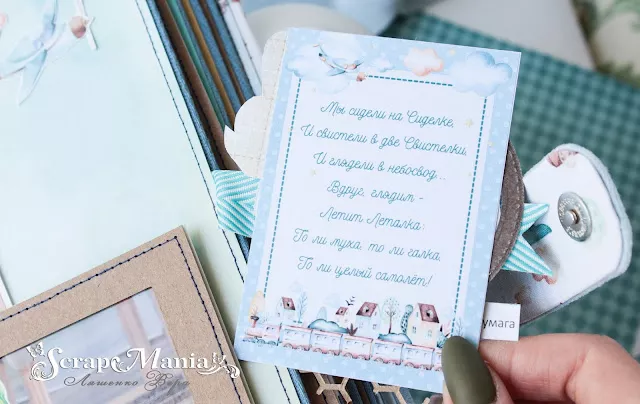 Мы сидели на Сиделке,
И свистели в две Свистелки,
И глядели в небосвод...
Вдруг, глядим -
Летит Леталка:
То ли муха, то ли галка,
То ли целый самолёт!
умага
ScrapeMania
Ляшенко Вера